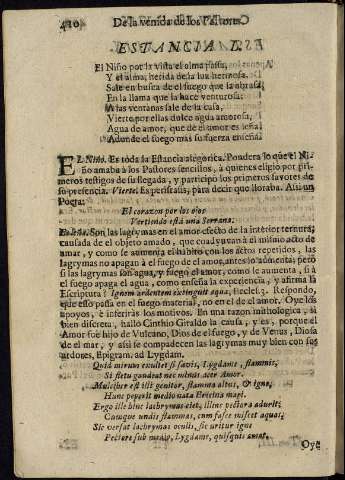 420 De la venida de los Pastores
ESTANCIA L.
El Niño por la vista el alma passa,
Y el alma, herida de su luz hermosa,
Sale en busca de el fuego que la abrasa
En la llama que la hace venturosa:
A las ventanas sale de su casa,
Vierte por ellas dulce agua amorosa,
Agua de amor, que de el amor es seña
Adonde el fuego más su fuerza enseña.
EL Niño. Es toda la Estancia alegorica. Pondera lo que el Ni-
ño amaba à los Pastores sencillos, à quienes eligió por pri-
meros testigos de su llegada, y participò los primeros favores de
su presencia. Vierte. Experifrasis, para decir que lloraba. Assi un
Poeta:
El corazon por los ojos
Vertiendo está una Serrana:
Son las lagrymas en el amor efecto de la interior ternura,
causada de el objeto amado, que coadyuvan à el mismo acto de
amar, y como se aumenta el habito con los actos repetidos, las
lagrymas no apagan à el fuego de el amor, antes lo aumentan; pero
si las lagrymas son agua, y fuego el amor, como le aumenta, si à
el fuego apaga el agua, como enseña la experiencia, y afirma la
Escriptura? Ignem ardentem extinguit aqua, Eccles. 3. Respondo,
que esso passa en el fuego material, no en el de el amor. Oye los
apoyos, è inferiràs los motivos. En una razon mithologica, si
bien discreta, hallo Cinthio Giraldo la causa, y es, porque el
Amor fue hijo de Vulcano, Dios de el fuego, y de Venus, Diosa
de el mar, y assi se compadecen las lagrymas muy bien con sus
ardores, Epigram. ad Lygdam.
Quid mirum exultet si sævis, Lygdame, flammis,
Si fletu gaudeat nec minus acer Amor.
Mulciber est illi genitor, flamma altus, & igne,
Hunc peperit medio nata Erycina mari.
Ergo ille hinc lachrymas ciet, illinc pectora adurit;
Cumque undis flammas, cum fusce miscet aquas;
Sic versat lachrymas oculis, sic uritur igne
Pectore sub misero, Lygdame, quisquis amat.
Oye